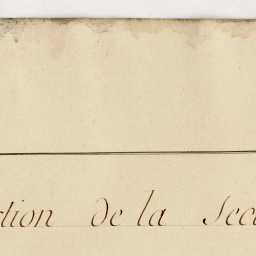 ction de la Sec